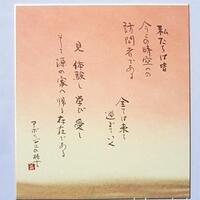 私たちは皆
今この時空への
訪問者である
全ては来て
過ぎていく
見 体験し 学び 愛し
そして源の家へ帰る存在である
アボリジニの格言